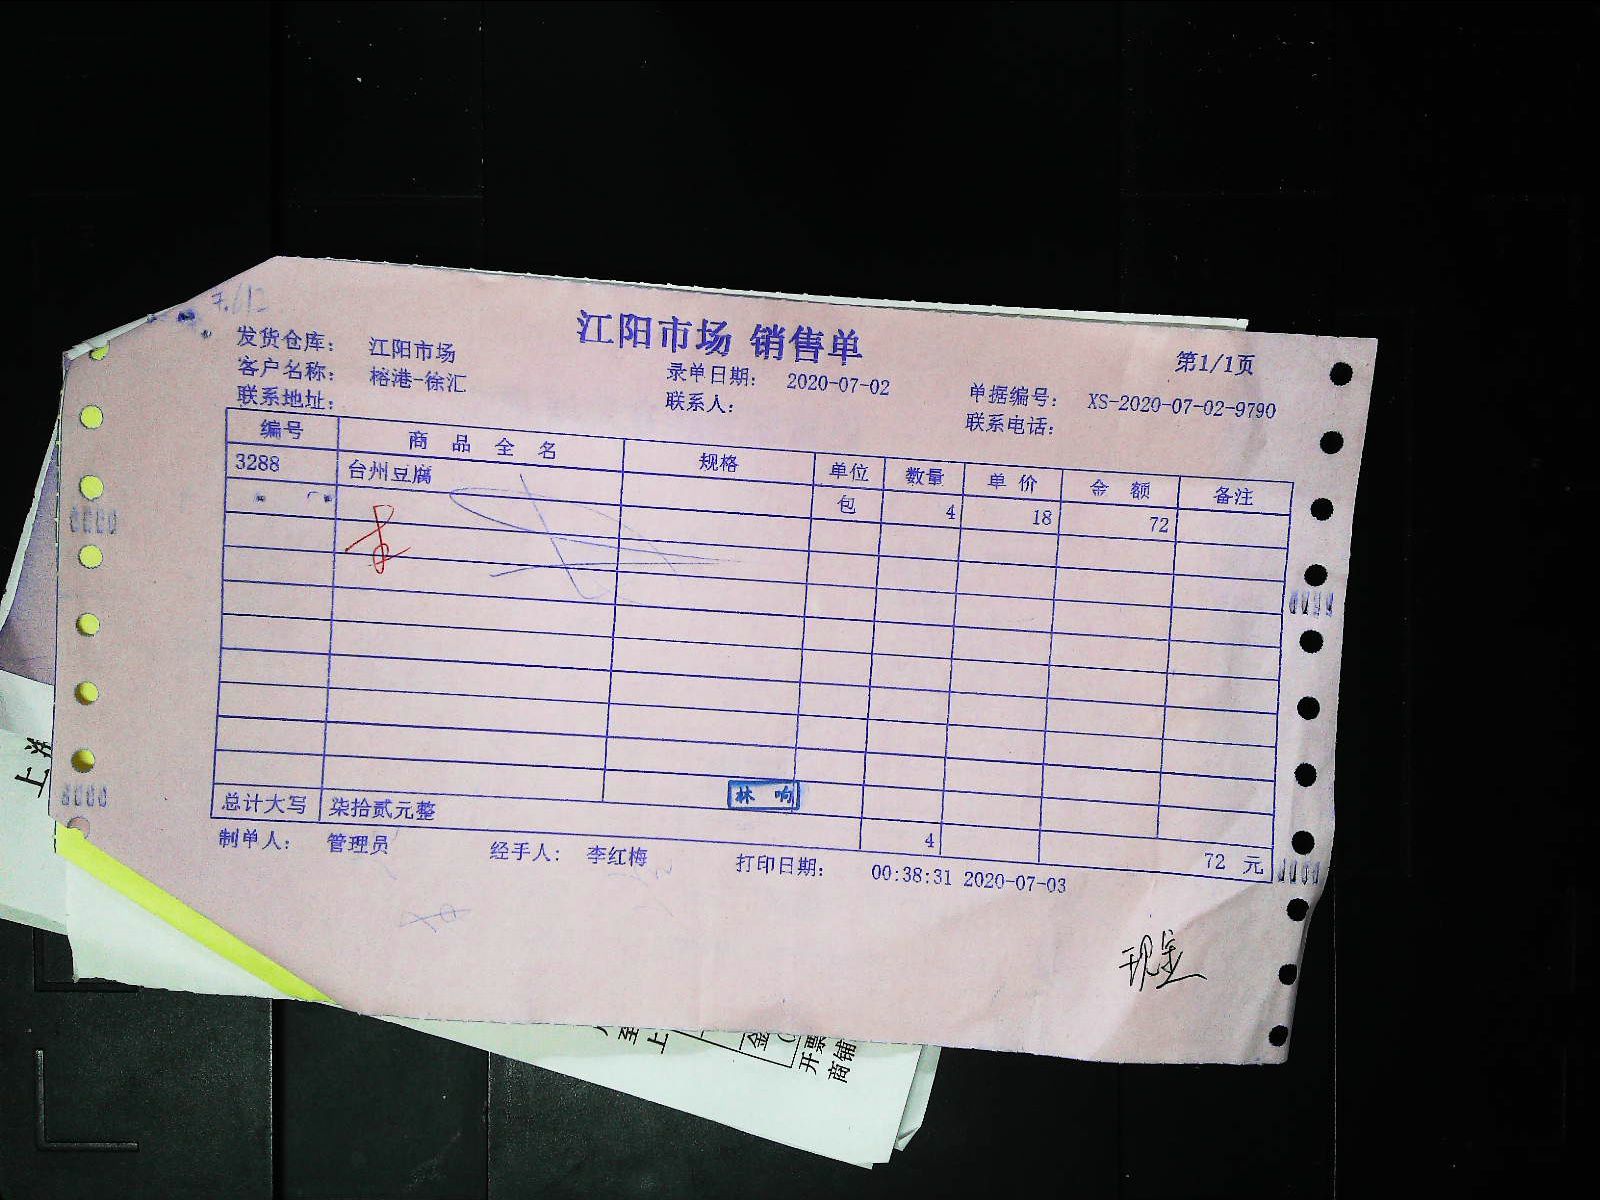 江阳市场 销售单
第1/1页
发货仓库: 江阳市场
客户名称: 榕港-徐汇 录单日期: 2020-07-02 单据编号: XS-2020-07-02-9790
联系地址: 联系人: 联系电话:
编号 商品全名 规格 单位 数量 单价 金额 备注
3288 台州豆腐 包 4 18 72
林响
总计大写 柒拾贰元整 4 72 元
制单人: 管理员 经手人: 李红梅 打印日期: 00:38:31 2020-07-03
现金
上
至
上
金
开票
商铺